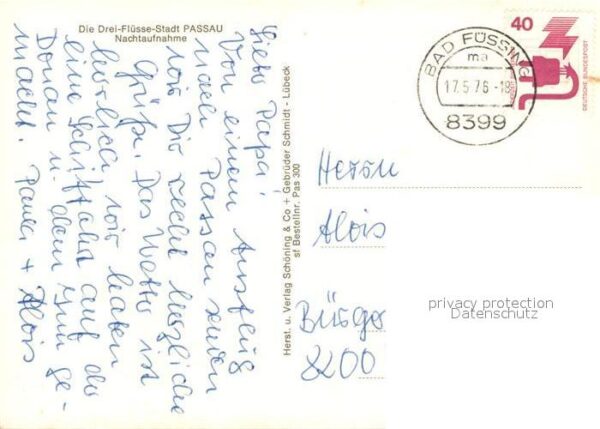 Die Drei-Flüsse-Stadt PASSAU
Nachtaufnahme
Lieber Papa!
Von einem Ausflug
nach Passau senden
wir Dir recht herzliche
Grüße. Das Wetter ist
herrlich, wir haben
eine Schiffahrt auf der
Donau u. dem Inn ge-
macht. + Alois
Herst. u. Verlag Schöning & Co + Gebrüder Schmidt - Lübeck
sf Bestellnr. Pas 300
40
DEUTSCHE BUNDESPOST
BAD FÜSSING
ma
17.5.76-18
8399
Herrn
Alois
8200
privacy protection
Datenschutz